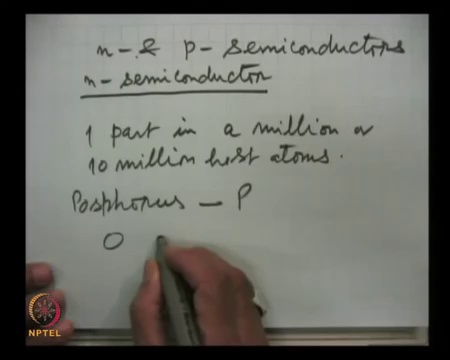 n- & p- semiconductors
n- semiconductor
1 part in a million or
10 million host atoms.
Posphorus — P
O
NPTEL